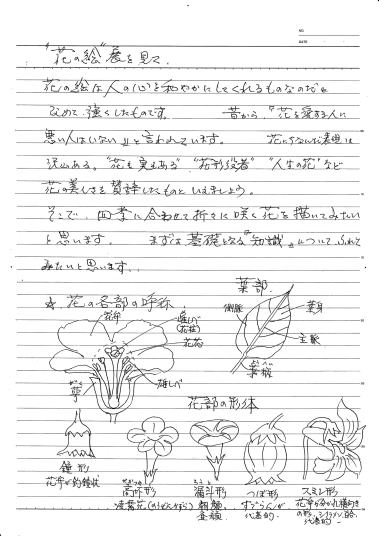 NO.
DATE
"花の絵"展を見て.
花の絵は人の心を和やかにしてくれるものなのだと
改めて強くしたものです. 昔から,『花を愛する人に
悪い人はいない』と言われています. 花にちなんだ表現は
沢山ある。"花も実もある" "花形役者" "人生の花" など
花の美しさを賛辞したものといえましょう.
そこで, 四季に合わせて折々に咲く花を描いてみたい
と思います. まずは基礎となる『知識』についてふれて
みたいと思います.
☆ 花の各部の呼称.
葉部
花弁
雌しべ
(花柱)
側脈
葉身
花冠
主脈
葉柄
萼
雄しべ
花部の形体
鐘形
花弁が釣鐘状
高坏形
凌霄花(のうぜんかずら)
漏斗形
朝顔,
昼顔.
つぼ形
すずらんが
代表的.
スミレ形
花弁が分かれ横向き
の形,
代表的